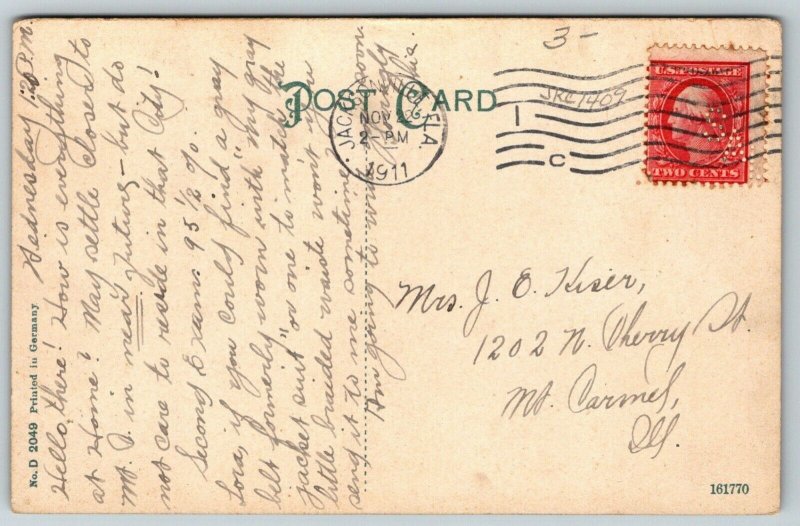 Wednesday 1:20 P.M.
Hello, there! How is everything
at Home? May settle closer to
Mt. in near future — but do
not care to reside in that City!
Second Exam. 95 1/2 %.
Lora, if you could find a gray
belt formerly worn with "my gray
jacket suit" or one to match the
little braided waist won't you
send it to me sometime soon
Am going to write
POST CARD
JACKSONVILLE FLA
NOV 22
2-PM
1911
1
C
3-
JRC1409
U.S. POSTAGE
TWO CENTS
Mrs. J. O. Kiser,
1202 N. Cherry St.
Mt. Carmel,
Ill.
No. D 2049 Printed in Germany
161770